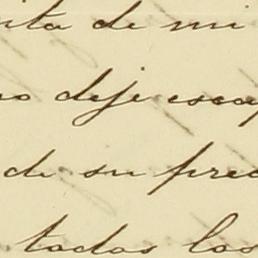 ita de mi
no deje escap
de su prec
todos los